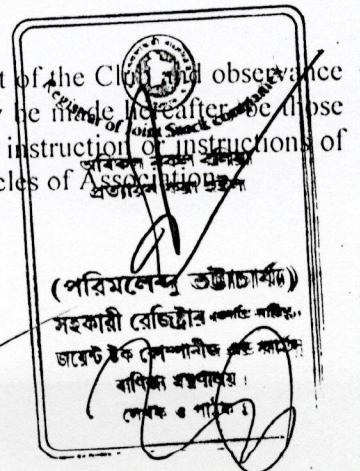 t of the Club and observance
y be made hereafter be those
instruction or instructions of
cles of Association.
Registrar of Joint Stock Companies
অবিকল নকল বলিয়া
প্রত্যায়ন করা হইল
(পরিমলেন্দু ভট্টাচার্য্য)
সহকারী রেজিষ্ট্রার
জয়েন্ট ষ্টক কোম্পানীজ এন্ড ফার্মস
বাণিজ্য মন্ত্রণালয়।